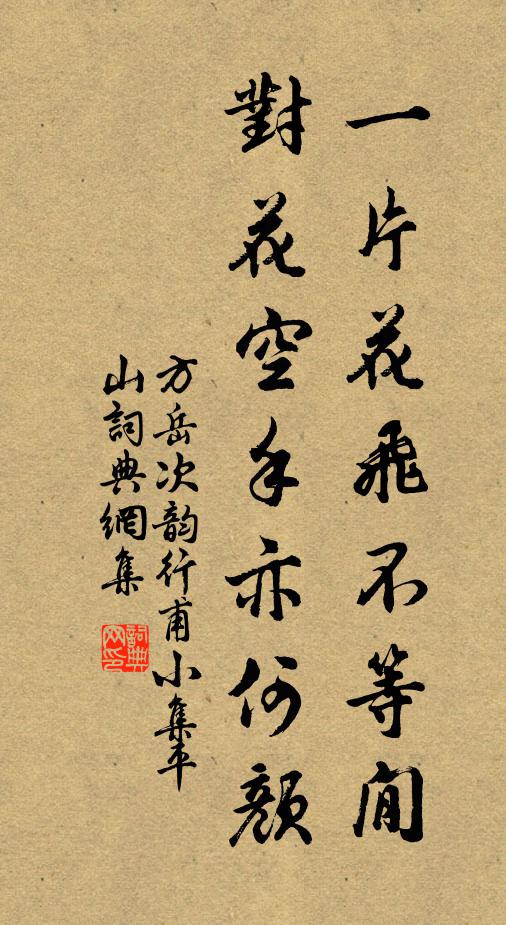 一片花飛不等閒
對花空手亦何顏
方岳次韵行甫小集平
山詞典網集
詞典网印